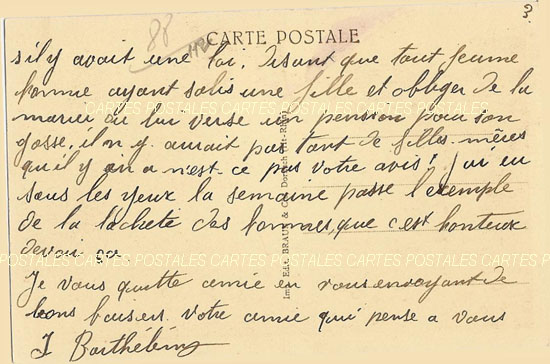 3
88
CARTE POSTALE
s'il y avait une loi, disant que tout jeune
homme ayant salis une fille et obliger de la
marier ou lui verse un pension pour son
gosse, il n y aurait pas tant de filles-mères
qu'il y en a n'est-ce pas votre avis! j'ai eu
sous les yeux la semaine passe l'exemple
de la lacheté des hommes, que c'est honteux
devoir ça.
Je vous quitte amie en vous envoyant de
bons baisers votre amie qui pense a vous
J Barthélémy
Imp. Edit. BRAUN & Cie Dornach (Ht-Rhin)
CARTES POSTALES CARTES POSTALES CARTES POSTALES CARTES POSTALES
CARTES POSTALES CARTES POSTALES CARTES POSTALES CARTES POSTALES